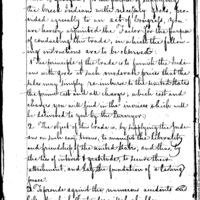 the Creek Indians within the State,
corded agreeably to an act of Congress, you
are hereby appointed the Factor for the purpose
of conducting the trade, in which the follow-
ing instructions are to be observed.
1 The principle of the trade is to furnish the India-
ns with goods at such moderate prices that the
sales may simply reimburse to the United States
the prime cost and all charges, which cost and
charges you will find in the invoice which will
be delivered to you by the Purveyor.
2 The object of the trade is, by supplying the Indi-
ans on such easy terms, to manifest the liberality
and friendship of the United States, and thus, by
the ties of interest & gratitude, to secure their
attachment, and lay the foundation of a lasting
peace.
3 To provide against the numerous accidents